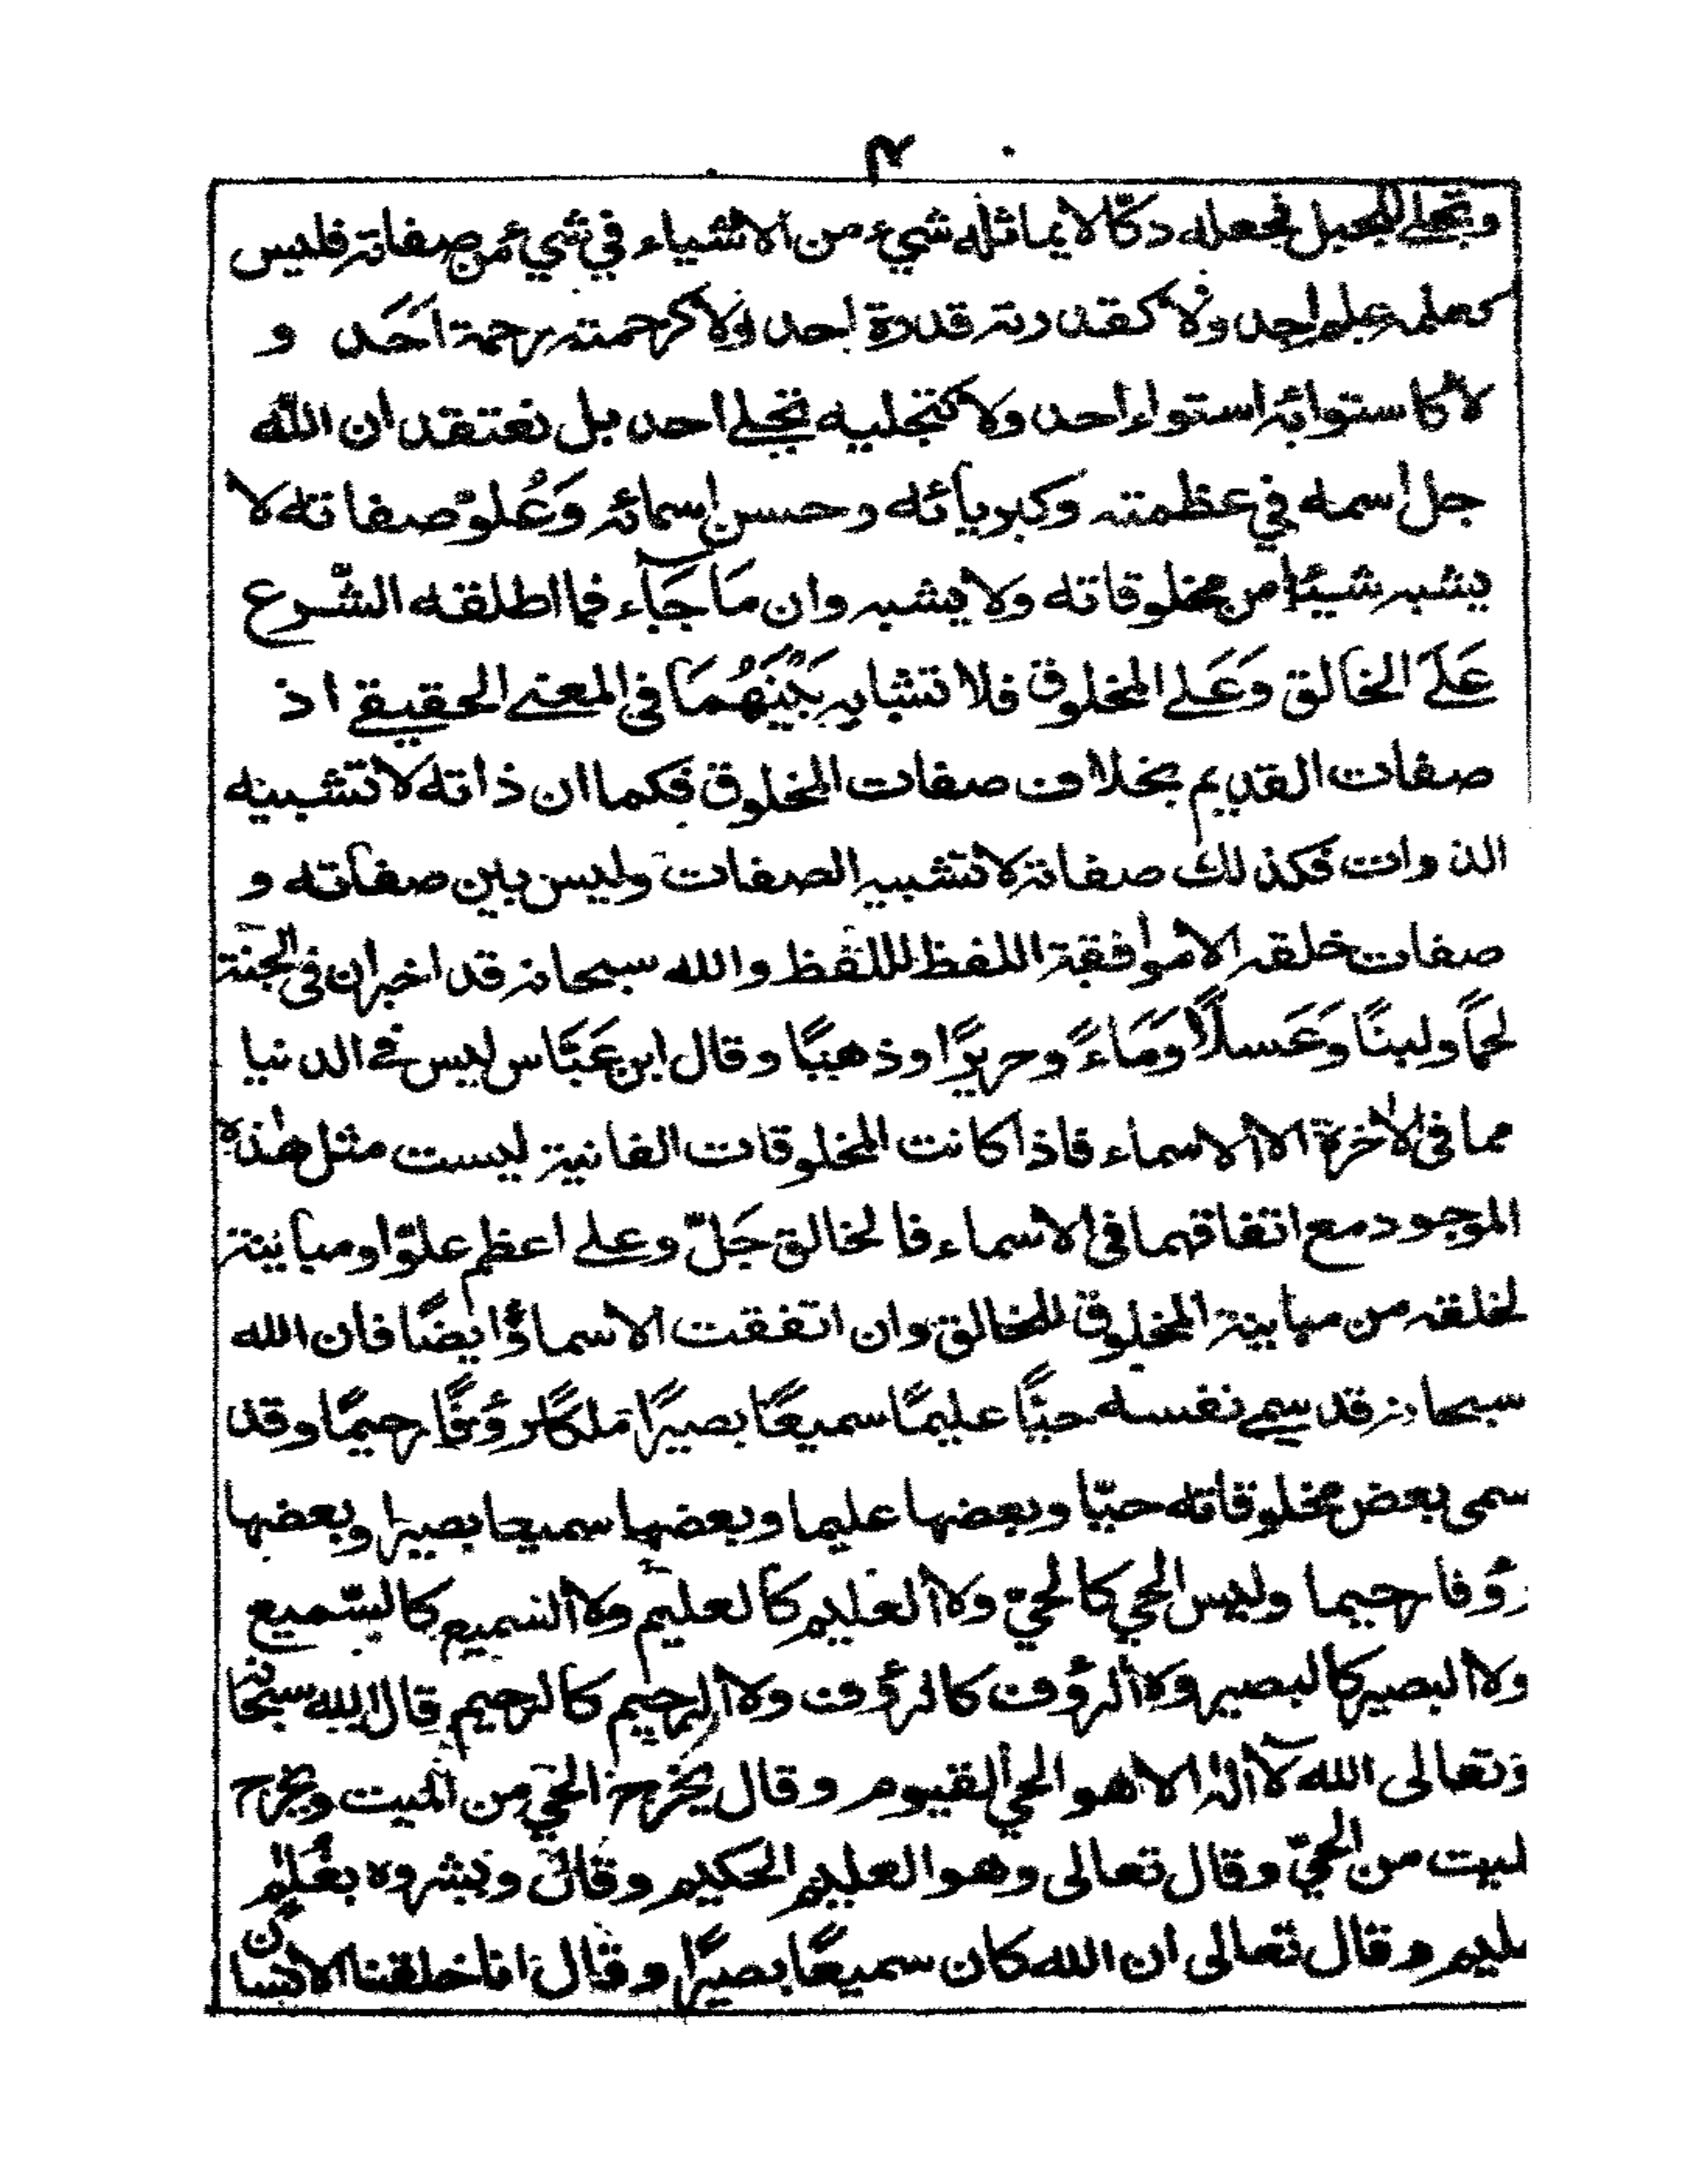 ٣
وتجلى للجبل فجعله دكّا لا يماثله شيء من الاشياء في شيء من صفاته فليس
كعلمه علم احد ولا كقدرته قدرة احد ولا كرحمته رحمة احَد و
لا كاستوائه استواء احد ولا كتجليه تجلے احد بل نعتقد ان اللّه
جل اسمه في عظمته وكبريائه وحسن اسمائه وَعُلوّ صفاته لا
يشبه شيئا من مخلوقاته ولا يشبه وان مَا جَآء فما اطلقه الشّرع
عَلَى الخالق وَعَلے المخلوق فلا تشابه بَيْنَهُمَا في المعنے الحقيقے اذ
صفات القديم بخلاف صفات المخلوق فكما ان ذاته لا تشبيه
الذوات فكذلك صفاته لا تشبيه الصفات وليس بين صفاته و
صفات خلقه الا موافقة اللفظ للفظ والله سبحانه قد اخبر ان فى الجنة
لحمًا ولبنًا وَعَسلًا وَمَاءً وحريرًا وذهبًا وقال ابن عَبَّاس ليس فے الدنيا
مما فى الاخرة الا الاسماء فاذا كانت المخلوقات الفانية ليست مثل هذه
الموجود مع اتفاقهما فى الاسماء فالخالق جَلّ وعلے اعظم علوّا ومباينة
لخلقه من مباينة المخلوق للخالق وان اتفقت الاسماء وُايضًا فان الله
سبحانه قد سمے نفسه حيًّا عليمًا سميعًا بصيرًا ملكًا رؤفًا رحيمًا وقد
سمى بعض مخلوقاته حيّا وبعضها عليما وبعضها سميعا بصيرا وبعضها
رؤفا رحيما وليس الحي كالحيّ ولا العليم كالعليم ولا السميع كالسّميع
ولا البصير كالبصير ولا الرؤف كالرؤف ولا الرحيم كالرحيم قال الله سبحانه
وتعالى الله لآ اله الا هو الحي القيوم وقال يخرج الحيّ من الميت ويخرج
لميت من الحيّ وقال تعالى وهو العليم الحكيم وقال وبشروه بغُلٰم
عليم وقال تعالى ان الله كان سميعًا بصيرًا وقال انا خلقنا الانسان